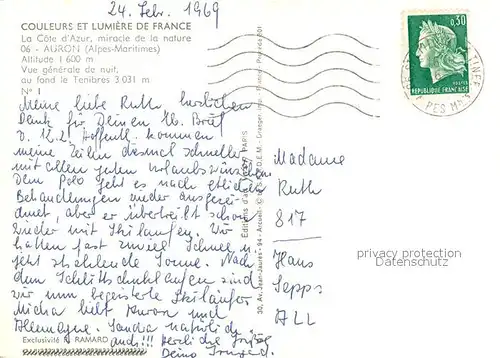 24. Febr. 1969
COULEURS ET LUMIÈRE DE FRANCE
La Côte d'Azur, miracle de la nature
06 - AURON (Alpes-Maritimes)
Altitude 1 600 m
Vue générale de nuit,
au fond le Tenibres 3 031 m
N° 1
Meine liebe Ruth herzlichen
Dank für Deinen lb. Brief
v. 12.2. Hoffentl. kommen
meine Zeilen diesmal schneller
mit allen guten Urlaubswünschen
Dem Polo geht es nach etlichen
Behandlungen wieder ausgezei-
dnet, aber er übertreibt schon
wieder mit Skilaufen. Wir
hatten fast zuviel Schnee u.
jetzt strahlende Sonne. Nach
dem Schlittschuhlaufen sind
wir nun begeisterte Skiläufer
Micha liebt Auron und
Allemagne. Sandra natürlich
auch!!! Herzliche Grüße
Deine
Exclusivité R. RAMARD
Éditions d'art PARIS
30, Av. Jean-Jaurès - 94 - Arcueil
0,30
POSTES
REPUBLIQUE FRANÇAISE
Madame
Ruth
817
Hans
Sepps
ALL
privacy protection
Datenschutz